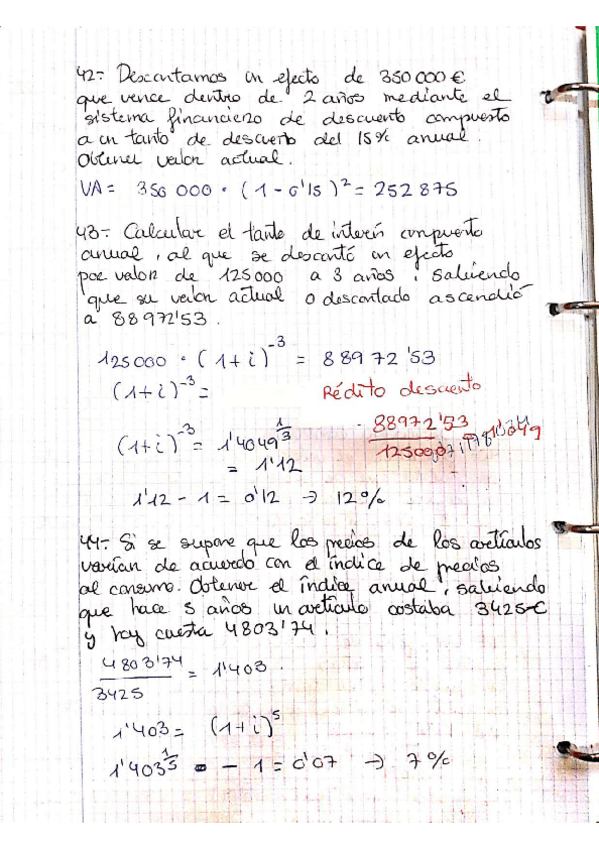 42- Descontamos un efecto de 350 000 €
que vence dentro de 2 años mediante el
sistema financiero de descuento compuesto
a un tanto de descuento del 15% anual.
Obtener valor actual.
VA = 350 000 · (1 - 0'15)² = 252 875
43- Calcular el tanto de interés compuesto
anual, al que se descontó un efecto
por valor de 125000 a 3 años, sabiendo
que su valor actual o descontado ascendió
a 88972'53.
125000 · (1+i)⁻³ = 88972'53
(1+i)⁻³ =
Rédito descuento
(1+i)⁻³ = 1'4049^(1/3)
= 1'12
88972'53 / 125000
1'12 - 1 = 0'12 → 12%
44- Si se supone que los precios de los artículos
varían de acuerdo con el índice de precios
al consumo. Obtener el índice anual, sabiendo
que hace 5 años un artículo costaba 3425€
y hoy cuesta 4803'74.
4803'74 / 3425 = 1'403.
1'403 = (1+i)⁵
1'403^(1/5) - 1 = 0'07 → 7%